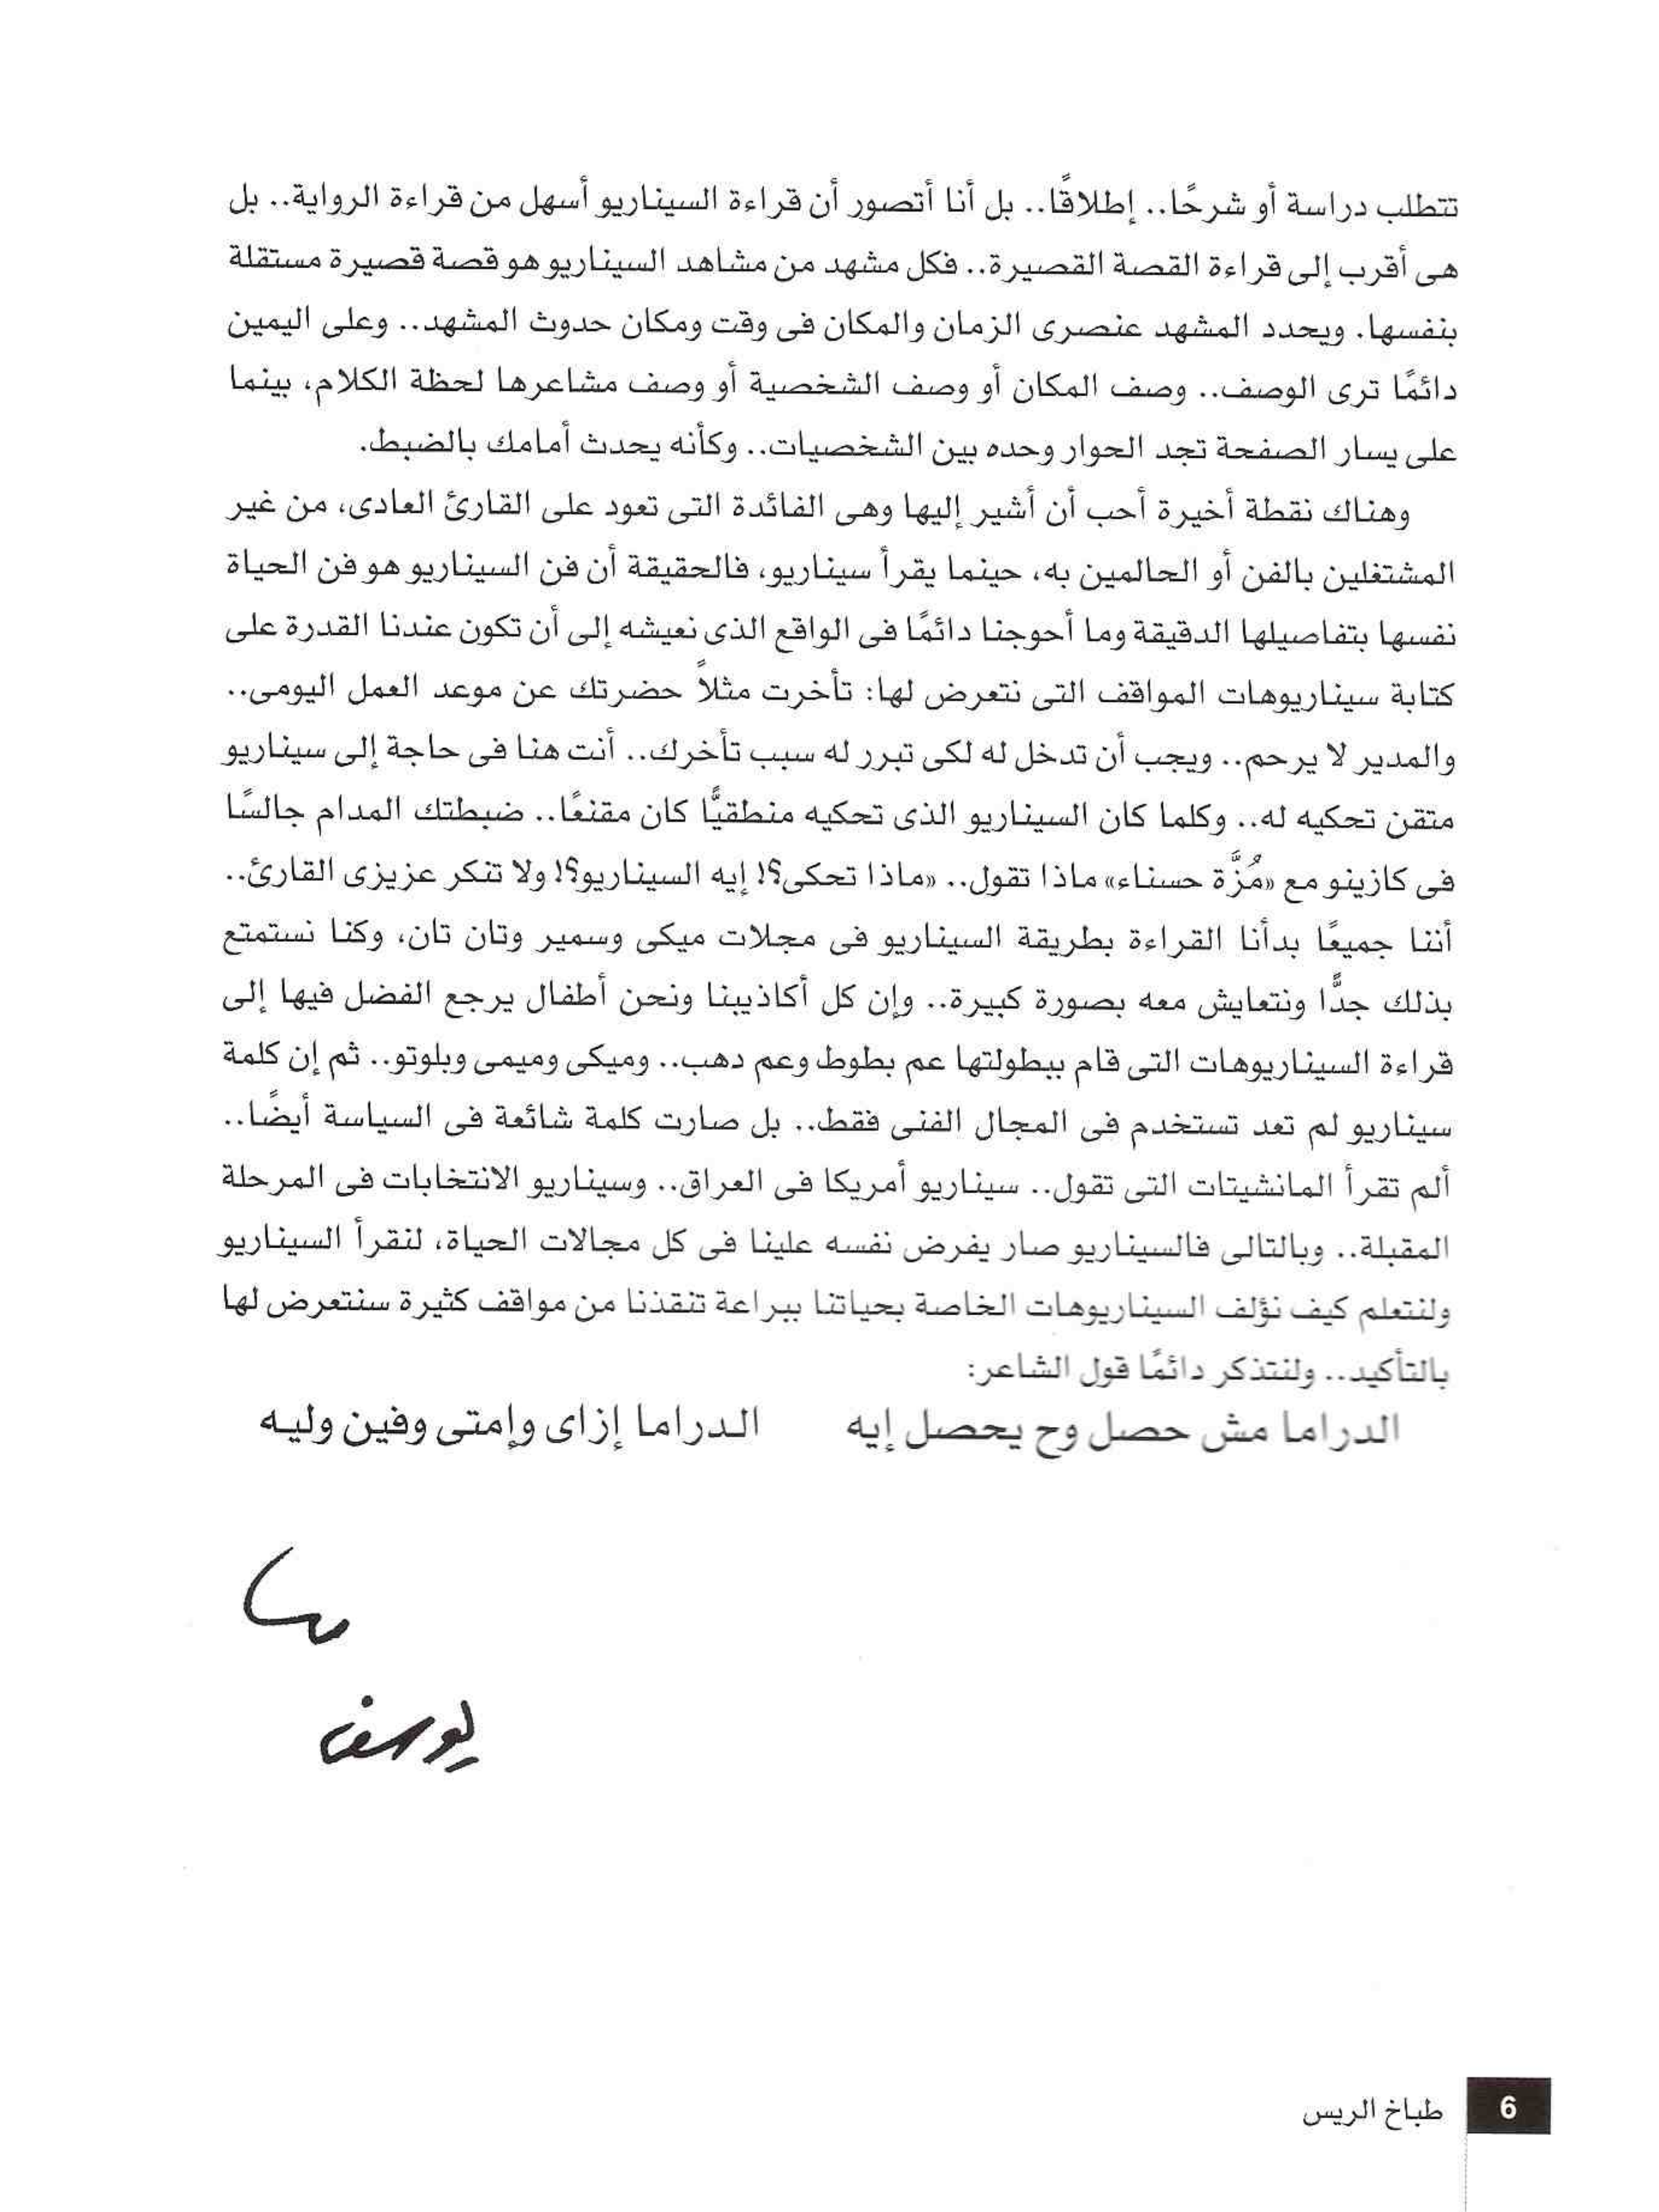 تتطلب دراسة أو شرحًا.. إطلاقًا.. بل أنا أتصور أن قراءة السيناريو أسهل من قراءة الرواية.. بل
هى أقرب إلى قراءة القصة القصيرة.. فكل مشهد من مشاهد السيناريو هو قصة قصيرة مستقلة
بنفسها. ويحدد المشهد عنصرى الزمان والمكان فى وقت ومكان حدوث المشهد.. وعلى اليمين
دائمًا ترى الوصف.. وصف المكان أو وصف الشخصية أو وصف مشاعرها لحظة الكلام، بينما
على يسار الصفحة تجد الحوار وحده بين الشخصيات.. وكأنه يحدث أمامك بالضبط.
وهناك نقطة أخيرة أحب أن أشير إليها وهى الفائدة التى تعود على القارئ العادى، من غير
المشتغلين بالفن أو الحالمين به، حينما يقرأ سيناريو، فالحقيقة أن فن السيناريو هو فن الحياة
نفسها بتفاصيلها الدقيقة وما أحوجنا دائمًا فى الواقع الذى نعيشه إلى أن تكون عندنا القدرة على
كتابة سيناريوهات المواقف التى نتعرض لها: تأخرت مثلاً حضرتك عن موعد العمل اليومى..
والمدير لا يرحم.. ويجب أن تدخل له لكى تبرر له سبب تأخرك.. أنت هنا فى حاجة إلى سيناريو
متقن تحكيه له.. وكلما كان السيناريو الذى تحكيه منطقيًّا كان مقنعًا.. ضبطتك المدام جالسًا
فى كازينو مع «مُزَّة حسناء» ماذا تقول.. «ماذا تحكى؟! إيه السيناريو؟! ولا تنكر عزيزى القارئ..
أننا جميعًا بدأنا القراءة بطريقة السيناريو فى مجلات ميكى وسمير وتان تان، وكنا نستمتع
بذلك جدًّا ونتعايش معه بصورة كبيرة.. وإن كل أكاذيبنا ونحن أطفال يرجع الفضل فيها إلى
قراءة السيناريوهات التى قام ببطولتها عم بطوط وعم دهب.. وميكى وميمى وبلوتو.. ثم إن كلمة
سيناريو لم تعد تستخدم فى المجال الفنى فقط.. بل صارت كلمة شائعة فى السياسة أيضًا..
ألم تقرأ المانشيتات التى تقول.. سيناريو أمريكا فى العراق.. وسيناريو الانتخابات فى المرحلة
المقبلة.. وبالتالى فالسيناريو صار يفرض نفسه علينا فى كل مجالات الحياة، لنقرأ السيناريو
ولنتعلم كيف نؤلف السيناريوهات الخاصة بحياتنا ببراعة تنقذنا من مواقف كثيرة سنتعرض لها
بالتأكيد.. ولنتذكر دائمًا قول الشاعر:
الدراما مش حصل وح يحصل إيه الدراما إزاى وإمتى وفين وليه
يوسف
6 طباخ الريس